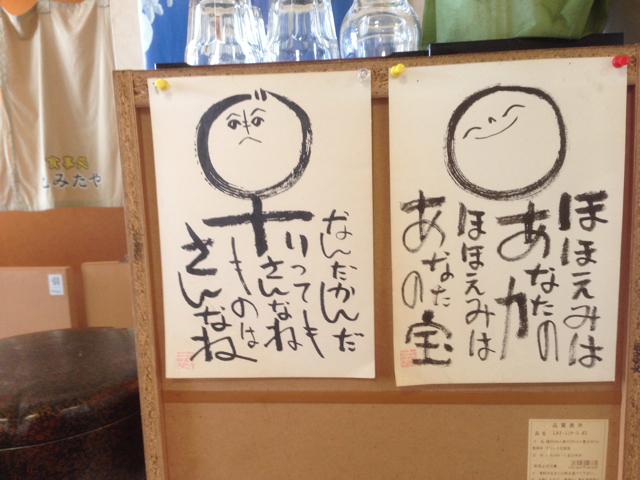 ほほえみは
あなたの
力
ほほえみは
あなたの
宝
なんだかんだ
いっても
さんなね
ものは
さんなね
食事処
とみたや
品質表示
品名